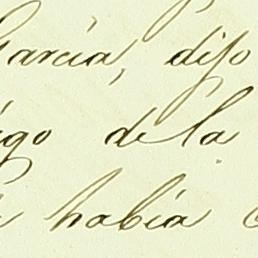 García, dijo
go de la
había